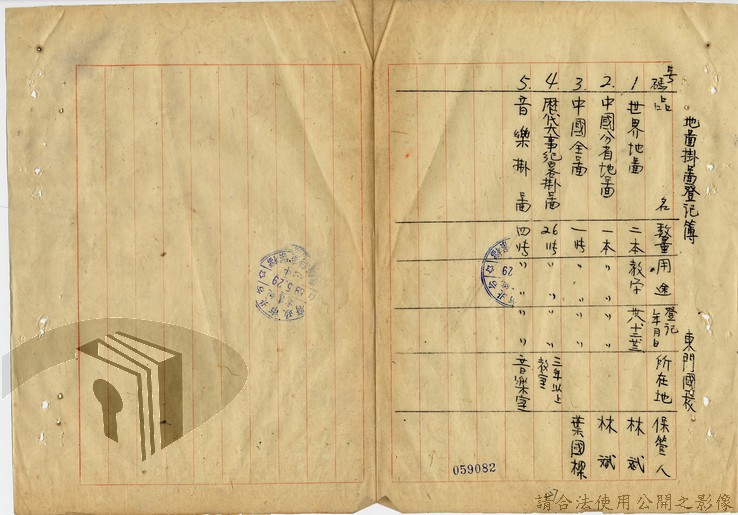 地啚掛啚登記簿 東門國校
号碼 品名 數量 用途 登記年月日 所在地 保管人
1 世界地啚 二本 教学 共十三 林斌
2. 中國分省地啚 一本 〃 〃 〃 林斌
3. 中國全啚 一张 〃 〃 〃 葉國樑
4. 歷代大事紀畧掛啚 26张 〃 〃 〃 三年以上教室
5. 音樂掛啚 四张 〃 〃 〃 音樂室
059082
請合法使用公開之影像